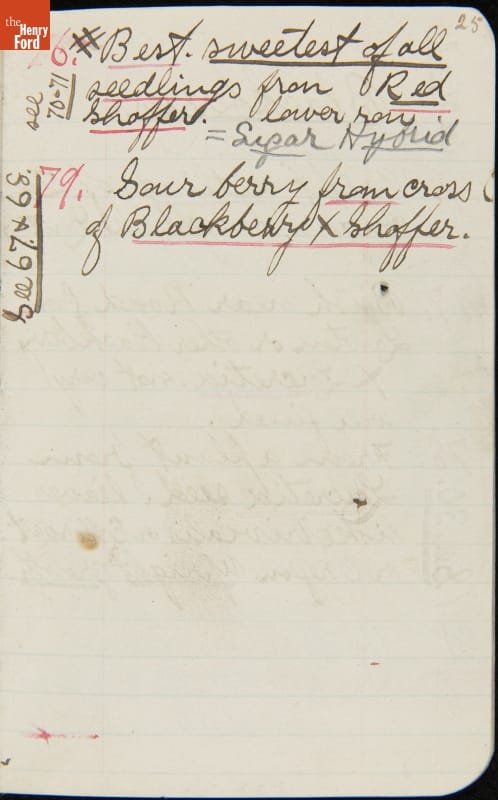 the
Henry
Ford
25
6. # Best. sweetest of all
seedlings from Red
Shaffer. lower row
= Sugar Hybrid
see
70-71
79. Sour berry from cross
of Blackberry X Shaffer.
See 67+68